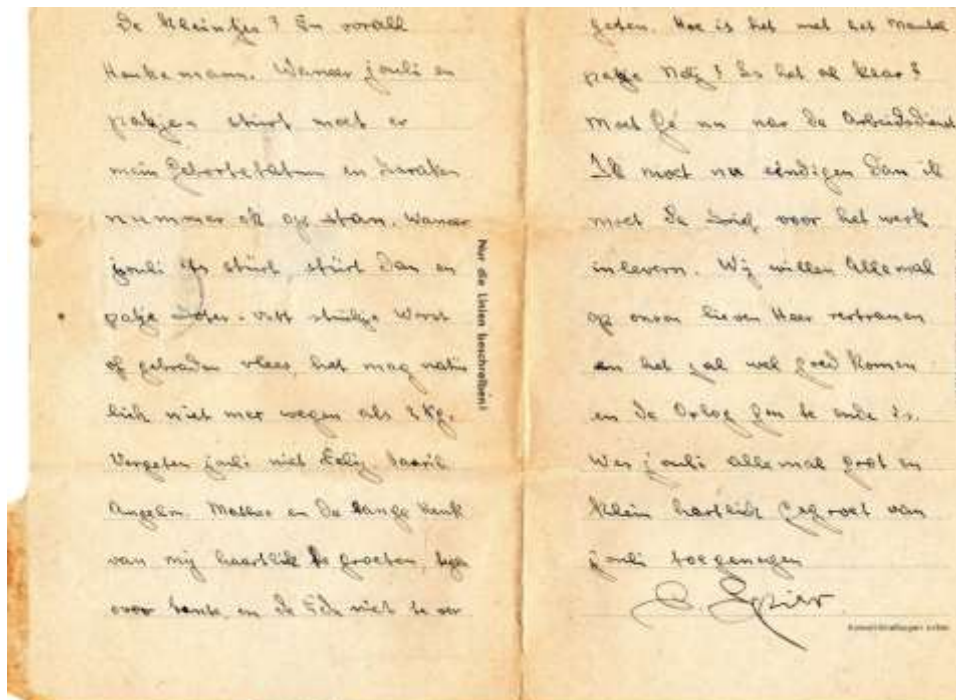 De Kleintjes? En vorall
Henkemann. Wanner jouli en
pakjen stürt moet er
mein Gebortedatum en Baraken
nummer ok op stan. Wanner
jouli stürt, stürt dan en
patje Boter - Vett stückje Worst
of gebraden vlees, het mag natür
lich niet mer wegen als 2 kg.
Vergeten jouli niet
Angelin. Mathes en de lange Henk
van mij haartlik te groeten,
over tante en de niet te ver
Nur die Linien beschreiben!
geten. Hoe is het met het Mantel
patje ? Is het al klar?
Moet Gé nu nar de Arbeidsdienst
Ik moet nu eindigen dan ik
moet de Brief voor het werk
inlevern. Wij willen Allemal
op onsen lieven Heer vertrauen
en het zal wel goed komen
en de Orlog gau te ende is.
Wes jouli allemal grot en
klein hartlik gegroet van
jouli toegenegen
Spier.